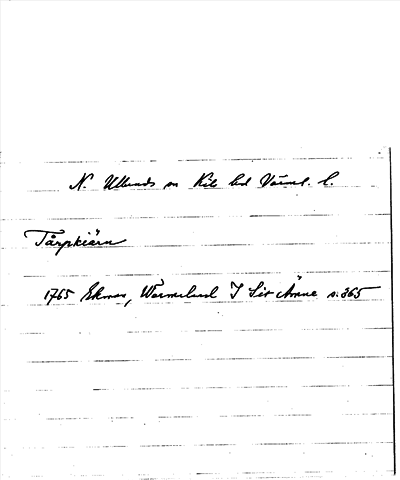 N. Ulleruds sn Kils hd Värml. l.
Tårpkiärn
1765 Ekman, Wärmeland I Sir Ämne s. 365